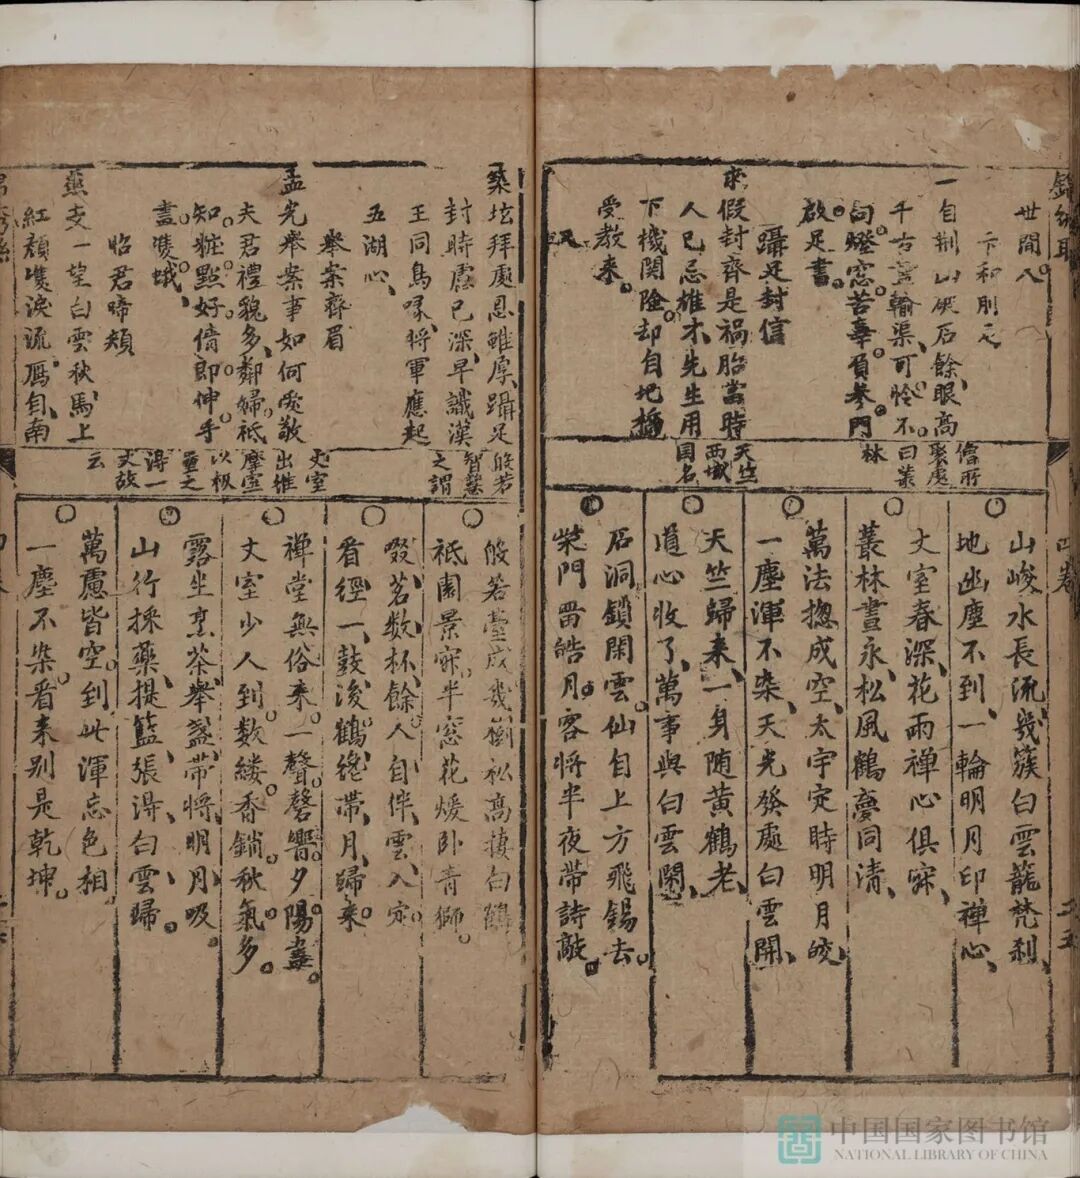 世間人
卞和刖足
一自荆山砍石餘、眼高
千古霊輸渠、可怜不
向燈窓苦辜負參門
啟足書。
躡足封信
求假封齊是禍胎當時
人已忌雄才、先生用
下機関险却自地
受教来。
又
築坛拜處恩雖厚、躡足
封時慮已深、早識漢
王同鳥喙、将軍應起
五湖心、
舉案齊眉
孟光舉案事如何愛敬
夫君禮貌多、鄰婦祗
知粧點好、倩郎伸手
畫雙蛾、
昭君啼頰
燕支一望白雲秋馬上
紅顔雙淚流、鴈自南
僧所
聚處
曰叢
林
天竺
西域
国名
般若
智慧
之謂
丈室
出維
摩室
以板
量之
得一
丈故
云
山峻水長流、幾簇白雲籠梵刹、
地幽塵不到、一輪明月印禅心、
丈室春深、花雨禅心俱寂、
叢林晝永、松風鶴夢同清、
萬法揔成空、太宇定時明月皎、
一塵渾不染、天光發處白雲開、
天竺歸来、一身随黄鶴老、
道心收了、萬事與白雲閑、
石洞鎖閑雲。仙自上方飛錫去。
柴門畱皓月。客将半夜带詩敲。
般若臺成幾樹松高捿白鶴
祗園景寂、半窓花煖卧青獅。
啜茗数杯、餘人自伴雲、入定
看經一、鼓後鶴、䌖帶、月、歸来
禅堂無俗来。一聲磬響夕陽盡。
丈室少人到、数縷香鎖秋氣多。
露坐烹茶、舉盞、带将明月、吸。
山行採藥、提籃、張得白雲歸。
萬慮皆空。到此渾忘色相、
一塵不染。看来别是乾坤。
四卷
中国国家图书馆
NATIONAL LIBRARY OF CHINA